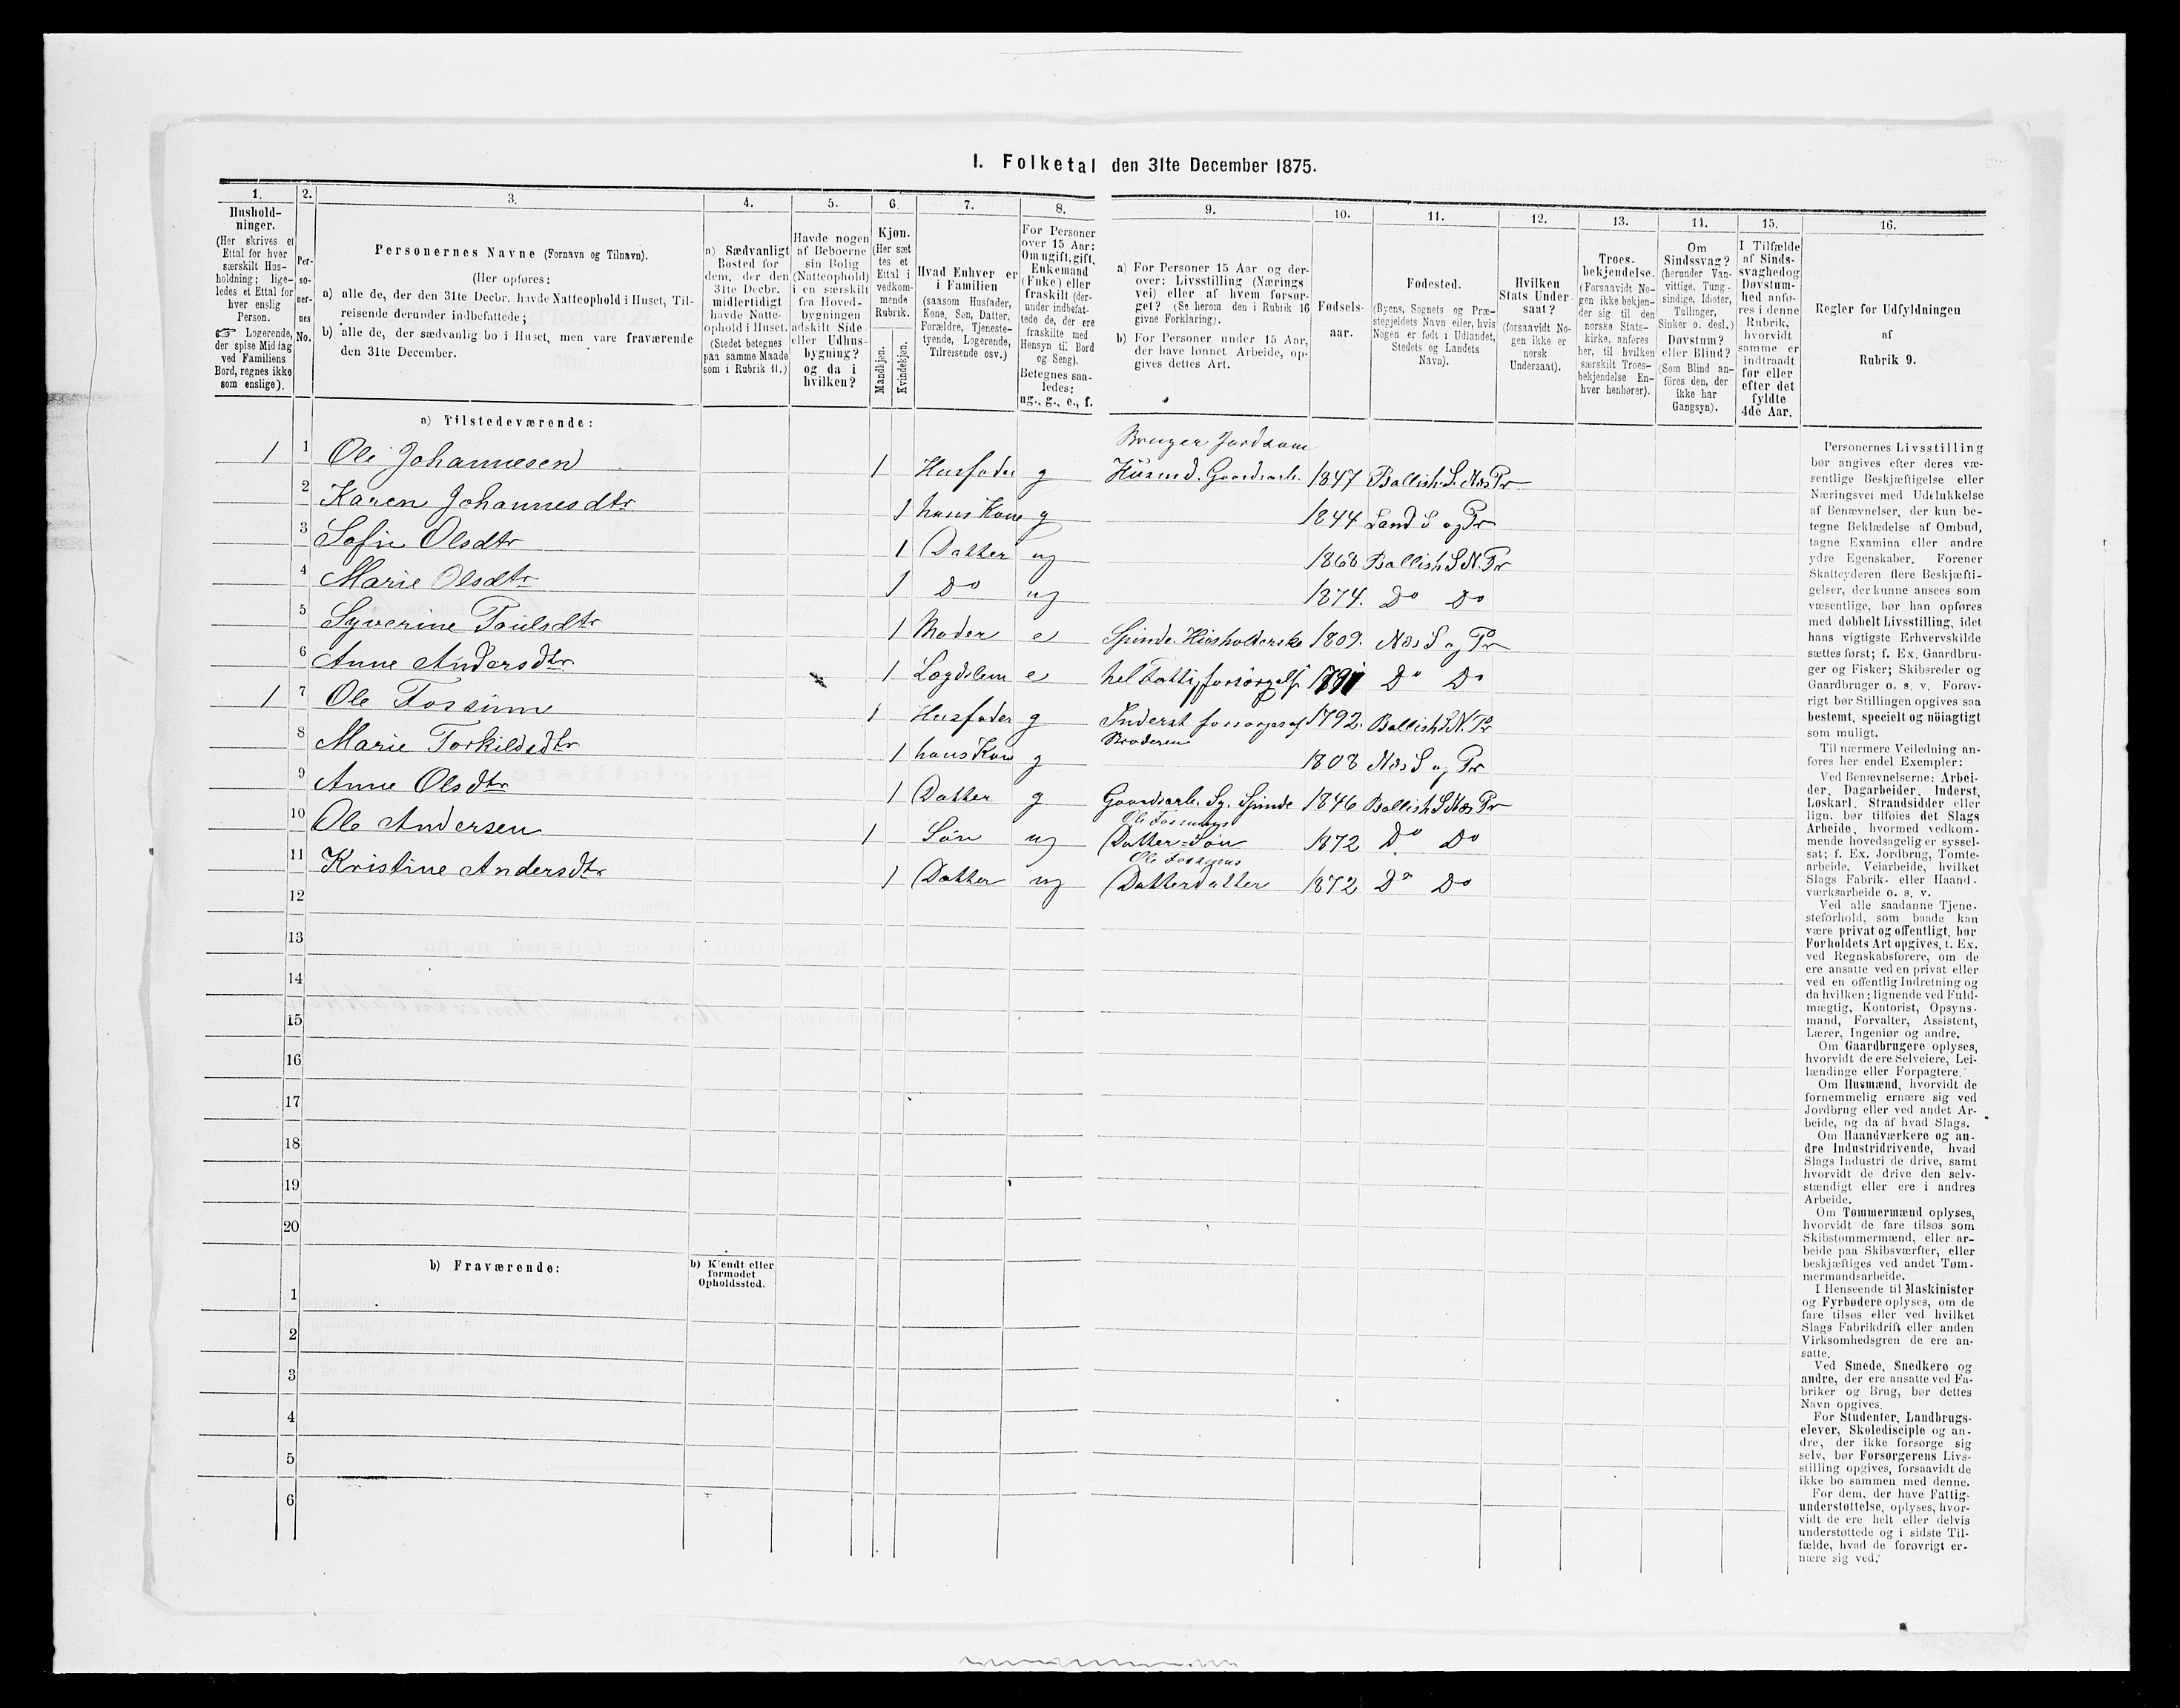 I. Folketal den 31te December 1875.
1. 2. 3. 4. 5. 6. 7. 8. 9. 10. 11. 12. 13. 14. 15. 16.
Hushold-
ninger.
(Her skrives et
Ettal for hver
særskilt Hus-
holdning; lige-
ledes et Ettal for
hver enslig
Person.
☞ Logerende,
der spise Middag
ved Familiens
Bord, regnes ikke
som enslige).
Per-
so-
ner-
nes
No.
Personernes Navne (Fornavn og Tilnavn).
(Her opføres:
a) alle de, der den 31te Decbr. havde Natteophold i Huset, Til-
reisende derunder indbefattede;
b) alle de, der sædvanlig bo i Huset, men vare fraværende
den 31te December.
a) Sædvanligt
Bosted for
dem, der den
31te Decbr.
midlertidigt
havde Natte-
ophold i Huset.
(Stedet betegnes
paa samme Maade
som i Rubrik 11.)
Havde nogen
af Beboerne
sin Bolig
(Natteophold)
i en særskilt
fra Hoved-
bygningen
adskilt Side
eller Udhus-
bygning?
og da i
hvilken?
Kjøn.
(Her sæt
tes et
Ettal i
vedkom-
mende
Rubrik.
Mandkjøn.
Kvindekjøn.
Hvad Enhver er
i Familien
(saasom Husfader,
Kone, Søn, Datter,
Forældre, Tjeneste-
tyende, Logerende,
Tilreisende osv.)
For Personer
over 15 Aar:
Om ugift, gift,
Enkemand
(Enke) eller
fraskilt (der-
under indbefat-
tede de, der ere
fraskilte med
Hensyn til Bord
og Seng).
Betegnes saa-
ledes:
ug., g., e., f.
a) For Personer 15 Aar og der-
over: Livsstilling (Nærings
vei) eller af hvem forsør-
get? (Se herom den i Rubrik 16
givne Forklaring).
b) For Personer under 15 Aar,
der have lønnet Arbeide, op-
gives dettes Art.
Fødsels-
aar.
Fødested.
(Byens, Sognets og Præ-
stegjeldets Navn eller, hvis
Nogen er født i Udlandet,
Stedets og Landets
Navn).
Hvilken
Stats Under-
saat?
(forsaavidt No-
gen ikke er
norsk
Undersaat).
Troes-
bekjendelse.
(Forsaavidt No-
gen ikke bekjen-
der sig til den
norske Stats-
kirke, anføres
her, til hvilken
særskilt Troes-
bekjendelse En-
hver henhører).
Om
Sindssvag?
(herunder Van-
vittige, Tung-
sindige, Idioter,
Tullinger,
Sinker o. desl.)
Døvstum?
eller Blind?
(Som Blind an-
føres den, der
ikke har
Gangsyn).
I Tilfælde
af Sinds-
svaghed og
Døvstum-
hed anfø-
res i denne
Rubrik,
hvorvidt
samme er
indtraadt
før eller
efter det
fyldte
4de Aar.
Regler for Udfyldningen
af
Rubrik 9.
a) Tilstedeværende:
Bruger Jord som
1 1 Ole Johannesen 1 Husfader g Husmd. Gaardsarb. 1847 Ballish. S. Næs Pr
2 Karen Johannesdtr 1 hans Kone g 1844 Land S og Pr
3 Sofie Olsdtr 1 Datter ug 1868 Ballish S N. Pr
4 Marie Olsdtr 1 Do ug 1874. Do Do
5 Syverine Poulsdtr 1 Moder e Spinde. Husholderske 1809. Næs S og Pr
6 Anne Andersdtr 1 Lægdslem e hel Fattigforsørgelse Do Do
1 7 Ole Fossum 1 Husfader g Inderst forsørges af 1792. Ballish S N. Pr
Broderen
8 Marie Torkildsdtr 1 hans Kone g 1808 Næs S og Pr
9 Anne Olsdtr 1 Datter g Gaardsarb. Sy. Spinde 1846 Ballish S Næs Pr
Ole Fossums
10 Ole Andersen 1 Søn ug Datter-Søn 1872 Do Do
Ole Fossums
11 Kristine Andersdtr 1 Datter ug Datterdatter 1872 Do Do
12
13
14
15
16
17
18
19
20
b) Fraværende:
b) Kjendt eller
formodet
Opholdssted.
1
2
3
4
5
6
Personernes Livsstilling
bør angives efter deres væ-
sentlige Beskjæftigelse eller
Næringsvei med Udelukkelse
af Benævnelser, der kun be-
tegne Beklædelse af Ombud,
tagne Examina eller andre
ydre Egenskaber. Forener
Skatteyderen flere Beskjæfti-
gelser, der kunne ansees som
væsentlige, bør han opføres
med dobbelt Livsstilling, idet
hans vigtigste Erhvervskilde
sættes først; f. Ex. Gaardbru-
ger og Fisker; Skibsreder og
Gaardbruger o. s. v. Forøv-
rigt bør Stillingen opgives saa
bestemt, specielt og nöiagtigt
som muligt.
Til nærmere Veiledning an-
føres her endel Exempler:
Ved Benævnelserne: Arbei-
der, Dagarbeider, Inderst,
Løskarl, Strandsidder eller
lign. bør tilføies det Slags
Arbeide, hvormed vedkom-
mende hovedsagelig er syssel-
sat; f. Ex. Jordbrug, Tomte-
arbeide, Veiarbeide, hvilket
Slags Fabrik- eller Haand-
værksarbeide o. s. v.
Ved alle saadanne Tjene-
steforhold, som baade kan
være privat og offentligt, bør
Forholdets Art opgives, t. Ex.
ved Regnskabsførere, om de
ere ansatte ved en privat eller
ved en offentlig Indretning og
da hvilken; lignende ved Fuld-
mægtig, Kontorist, Opsyns-
mand, Forvalter, Assistent,
Lærer, Ingeniør og andre.
Om Gaardbrugere oplyses,
hvorvidt de ere Selveiere, Lei-
lændinge eller Forpagtere.
Om Husmænd, hvorvidt de
fornemmelig ernære sig ved
Jordbrug eller ved andet Ar-
beide, og da af hvad Slags.
Om Haandværkere og an-
dre Industridrivende, hvad
Slags Industri de drive, samt
hvorvidt de drive den selv-
stændigt eller ere i andres
Arbeide.
Om Tømmermænd oplyses,
hvorvidt de fare tilsøs som
Skibstømmermænd, eller ar-
beide paa Skibsværfter, eller
beskjæftiges ved andet Tøm-
mermandsarbeide.
I Henseende til Maskinister
og Fyrbødere oplyses, om de
fare tilsøs eller ved hvilket
Slags Fabrikdrift eller anden
Virksomhedsgren de ere an-
satte.
Ved Smede, Snedkere og
andre, der ere ansatte ved Fa-
briker og Brug, bør dettes
Navn opgives.
For Studenter, Landbrugs-
elever, Skoledisciple og an-
dre, der ikke forsørge sig
selv, bør Forsørgerens Livs-
stilling opgives, forsaavidt de
ikke bo sammen med denne.
For dem, der have Fattig-
understøttelse, oplyses, hvor-
vidt de ere helt eller delvis
understøttede og i sidste Til-
fælde, hvad de forøvrigt er-
nære sig ved.